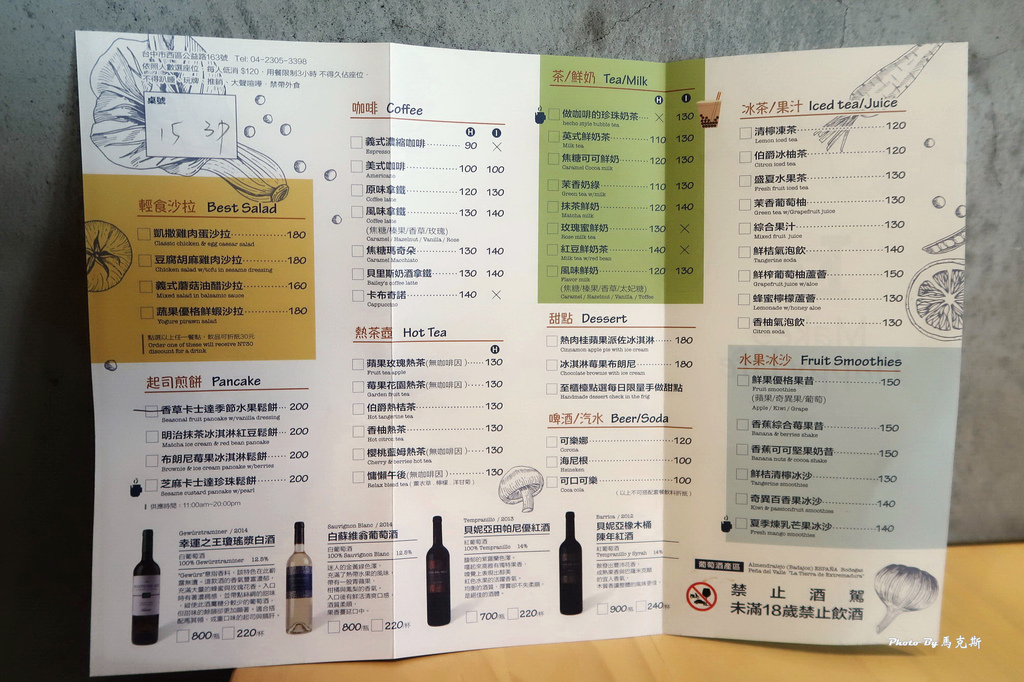 台中市西區公益路163號 Tel: 04-2305-3398
依照人數選座位，每人低消 $120，用餐限制3小時 不得久佔座位，
不得趴睡、玩牌、推銷、大聲喧嘩，禁帶外食
桌號
15
輕食沙拉 Best Salad
凱撒雞肉蛋沙拉 180
Classic chicken & egg caesar salad
豆腐胡麻雞肉沙拉 180
Chicken salad w/tofu in sesame dressing
義式蘑菇油醋沙拉 160
Mixed salad in balsamic sauce
蔬果優格鮮蝦沙拉 180
Yogurt prawn salad
點選以上任一餐點，飲品可折抵30元
Order one of these will receive NT30
discount for a drink
起司煎餅 Pancake
香草卡士達季節水果鬆餅 200
Seasonal fruit pancake w/vanilla dressing
明治抹茶冰淇淋紅豆鬆餅 200
Matcha ice cream & red bean pancake
布朗尼莓果冰淇淋鬆餅 200
Brownie & ice cream pancake w/berries
芝麻卡士達珍珠鬆餅 200
Sesame custard pancake w/pearl
供應時間：11:00am~20:00pm
咖啡 Coffee
H I
義式濃縮咖啡 90 ×
Espresso
美式咖啡 100 100
Americano
原味拿鐵 120 130
Coffee latte
風味拿鐵 130 140
Coffee latte
(焦糖/榛果/香草/玫瑰)
Caramel / Hazelnut / Vanilla / Rose
焦糖瑪奇朵 130 140
Caramel Macchiato
貝里斯奶酒拿鐵 130 140
Bailey's coffee latte
卡布奇諾 140 ×
Cappuccino
熱茶壺 Hot Tea
H
蘋果玫瑰熱茶(無咖啡因) 130
Fruit tea apple
莓果花園熱茶(無咖啡因) 130
Garden fruit tea
伯爵熱桔茶 130
Hot tangerine tea
香柚熱茶 130
Hot citron tea
櫻桃藍姆熱茶(無咖啡因) 130
Cherry & berries hot tea
慵懶午後(無咖啡因) 130
Relax blend tea (薰衣草、檸檬、洋甘菊)
茶/鮮奶 Tea/Milk
H I
做咖啡的珍珠奶茶 × 130
hecho style bubble tea
英式鮮奶茶 110 130
Milk tea
焦糖可可鮮奶 120 130
Caramel Cocoa milk
茉香奶綠 110 130
Green tea w/milk
抹茶鮮奶 120 130
Matcha milk
玫瑰蜜鮮奶 130 ×
Rose milk tea
紅豆鮮奶茶 140 ×
Milk tea w/red bean
風味鮮奶 120 130
Flavor milk
(焦糖/榛果/香草/太妃糖)
Caramel / Hazelnut / Vanilla / Toffee
甜點 Dessert
熱肉桂蘋果派佐冰淇淋 180
Cinnamon apple pie with ice cream
冰淇淋莓果布朗尼 180
Chocolate brownie with ice cream
至櫃檯點選每日限量手做甜點
Handmade dessert check in the frig
啤酒/汽水 Beer/Soda
可樂娜 120
Corona
海尼根 100
Heineken
可口可樂 100
Coca cola
(以上不可搭配套餐飲料折抵)
冰茶/果汁 Iced tea/Juice
清檸凍茶 120
Lemon iced tea
伯爵冰柚茶 120
Citron iced tea
盛夏水果茶 130
Fresh fruit iced tea
茉香葡萄柚 130
Green tea w/Grapefruit juice
綜合果汁 130
Mixed fruit juice
鮮桔氣泡飲 140
Tangerine soda
鮮榨葡萄柚蘆薈 150
Grapefruit juice w/aloe
蜂蜜檸檬蘆薈 130
Lemonade w/honey aloe
香柚氣泡飲 130
Citron soda
水果冰沙 Fruit Smoothies
鮮果優格果昔 150
Fruit smoothies
(蘋果/奇異果/葡萄)
Apple / Kiwi / Grape
香蕉綜合莓果昔 150
Banana & berries shake
香蕉可可堅果奶昔 150
Banana nuts & cocoa shake
鮮桔清檸冰沙 150
Tangerine smoothies
奇異百香果冰沙 140
Kiwi & passionfruit smoothies
夏季煉乳芒果冰沙 140
Fresh mango smoothies
Gewürstraminer / 2014
幸運之王瓊瑤漿白酒
白葡萄酒
Gewürztraminer 12.5%
800/瓶 220/杯
Sauvignon Blanc / 2014
白蘇維翁葡萄酒
白葡萄酒
100% Sauvignon Blanc 12.5%
迷人的金黃綠色澤，
充滿了熱帶水果的風味
帶有一股青蘋果、
柑橘與鳳梨的香氣，
入口後有鮮活清爽口感，
酒質柔順，
果香蔓延口中。
800/瓶 220/杯
Tempranillo / 2013
貝妮亞田帕尼優紅酒
紅葡萄酒
100% Tempranillo 14%
700/瓶 220/杯
Barrica / 2012
貝妮亞橡木桶
陳年紅酒
紅葡萄酒
Tempranillo y Syrah 14%
900/瓶 240/杯
葡萄酒產區
Almendralejo (Badajoz) ESPAÑA Bodegas
Peña del Valle "La Tierra de Extremadura"
禁止酒駕
未滿18歲禁止飲酒
Photo By 馬克斯